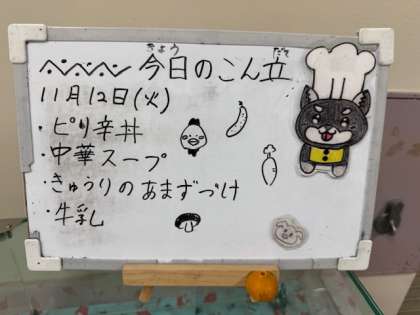 今日のこん立
きょう だて
11月12日(火)
・ピリ辛丼
・中華スープ
・きゅうりのあまずづけ
・牛乳